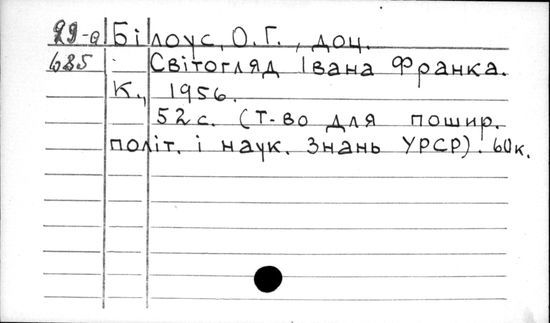 29-а Білоус, О.Г., доц.
685 Світогляд Івана Франка.
К., 1956.
52с. (Т-во для пошир.
політ. і наук. Знань УРСР). 60к.